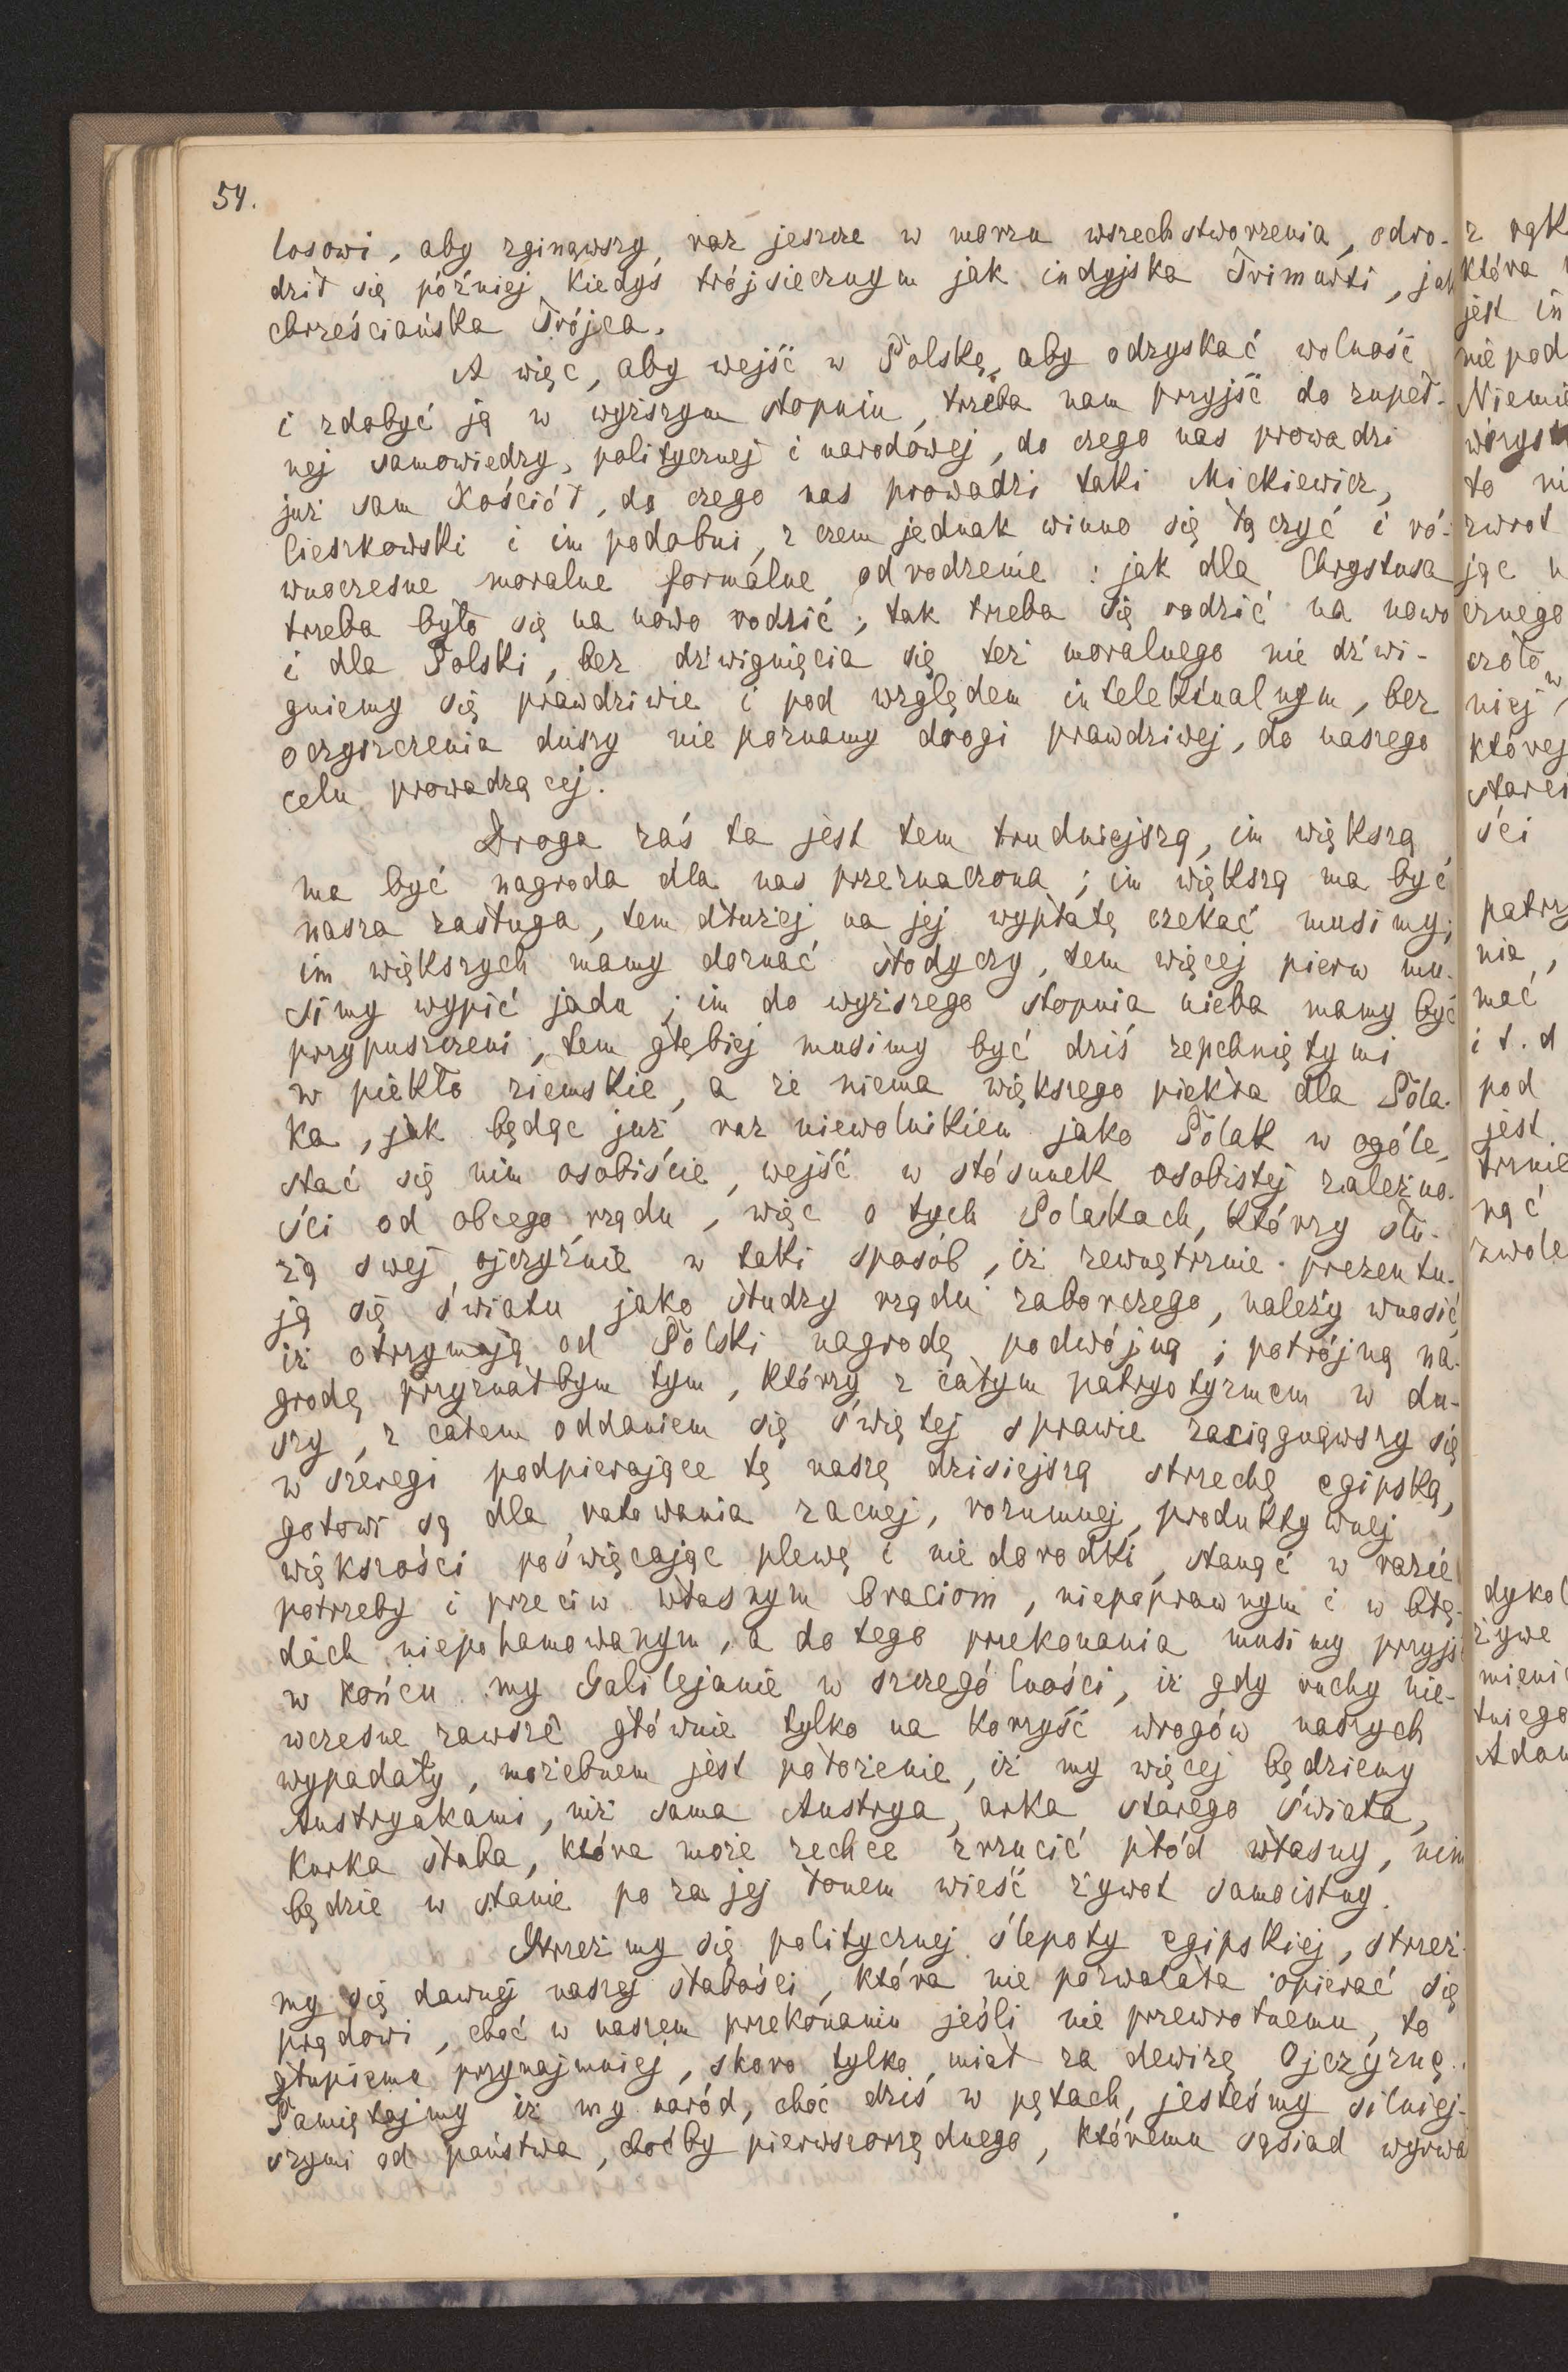 54.
losowi, aby zginąwszy raz jeszcze w morzu wszechstworzenia, odro-
dził się później kiedyś trójsiecznym jak indyjska Trimurti, jak
chrześciańska Trójca.
A więc, aby wejść w Polskę, aby odzyskać wolność
i zdobyć ją w wyższym stopniu, trzeba nam przyjść do zupeł-
nej samowiedzy, politycznej i narodowej, do czego nas prowadzi
już sam Kościół, do czego nas prowadzi taki Mickiewicz,
Cieszkowski i im podobni, z czem jednak winno się łączyć i ró-
wnoczesne moralne formalne odrodzenie: jak dla Chrystusa
trzeba było się na nowo rodzić, tak trzeba się rodzić na nowo
i dla Polski, bez dźwignięcia się też moralnego nie dźwi-
gniemy się prawdziwie i pod względem intelektualnym, bez
oczyszczenia duszy nie poznamy drogi prawdziwej, do naszego
celu prowadzącej.
Droga zaś ta jest tem trudniejszą, im większą
ma być nagroda dla nas przeznaczona; im większą ma być
nasza zasługa, tem dłużej na jej wypłatę czekać musimy;
im większych mamy doznać słodyczy, tem więcej pierw mu-
simy wypić jadu; im do wyższego stopnia nieba mamy być
przypuszczeni, tem głębiej musimy być dziś zepchniętymi
w piekło ziemskie, a że niema większego piekła dla Pola-
ka, jak będąc już raz niewolnikiem jako Polak w ogóle,
stać się nim osobiście, wejść w stósunek osobistej zależno-
ści od obcego rządu, więc o tych Polakach, którzy słu-
żą swej ojczyźnie w taki sposób, iż zewnętrznie prezentu-
ją się światu jako słudzy rządu zaborczego, należy wnosić,
iż otrzymają od Polski nagrodę podwójną; potrójną na-
grodę przyznałbym tym, którzy z całym patryotyzmem w du-
szy, z całem oddaniem się świętej sprawie zaciągnąwszy się
w szeregi podpierające tę naszę dzisiejszą strzechę egipską,
gotowi są dla ratowania zacnej, rozumnej, produktywnej
większości poświęcając plewę i niedorodki, stanąć w razie
potrzeby i przeciw własnym braciom, niepoprawnym i w błę-
dach niepohamowanym, a do tego przekonania musimy przyjś
w końcu my Galilejanie w szczególności, iż gdy ruchy nie-
wczesne zawsze głównie tylko na korzyść wrogów naszych
wypadały, możebnem jest położenie, iż my więcej będziemy
Austryakami, niż sama Austrya, arka starego świata,
Kurka słaba, która może zechce zrzucić płód własny, nim
będzie w stanie poza jej łonem wieść żywot samoistny.
Strzeżmy się politycznej ślepoty egipskiej, strzeż-
my się dawnej naszej słabości, która nie pozwalała opierać się
prądowi, choć w naszem przekonaniu jeśli nie przewrotnemu, to
głupiemu przynajmniej, skoro tylko miał za dewizę Ojczyznę.
Pamiętajmy iż my naród, choć dziś w pętach, jesteśmy silniej-
szymi od państwa, choćby pierwszorzędnego, któremu sąsiad wyrwa
z rąk
która
jest in
nie pod
Niemie
wszys
to ni
zwrot
jąc
cznego
czoło
niej
której
starei
ści
patrz
nia,
mać
i t. d
pod
jest
trznie
nąć
zwole
dykol
żywe
mieni
tniego
Adam